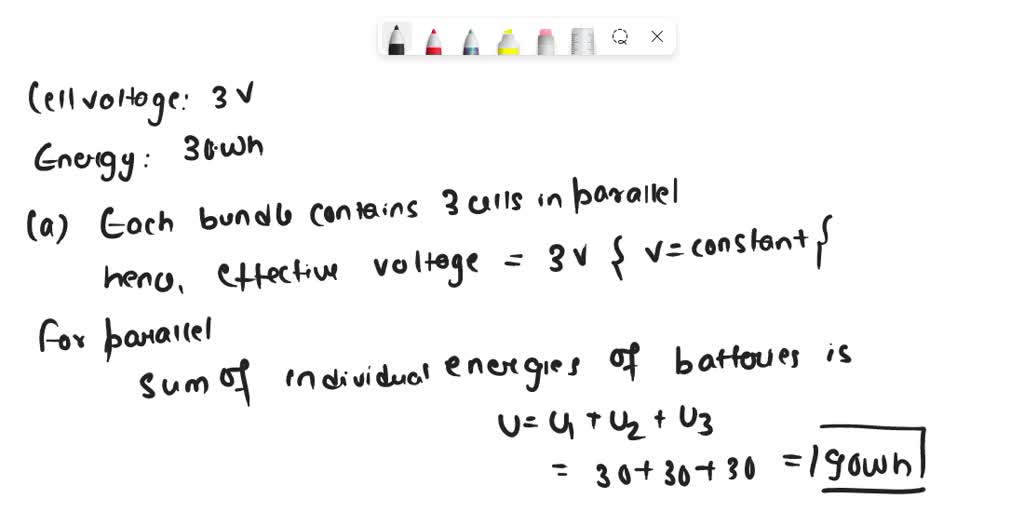 Cell voltage: 3 V
Energy: 30Wh
(a) Each bundle contains 3 cells in parallel
hence, effective voltage = 3 V { V = constant }
for parallel
sum of individual energies of batteries is
U = U1 + U2 + U3
= 30 + 30 + 30 = 90Wh